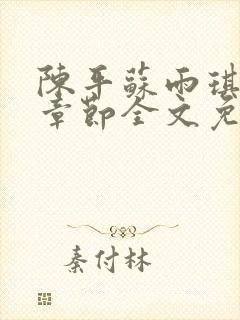 陳平蘇雨琪
章節全文免
秦付林